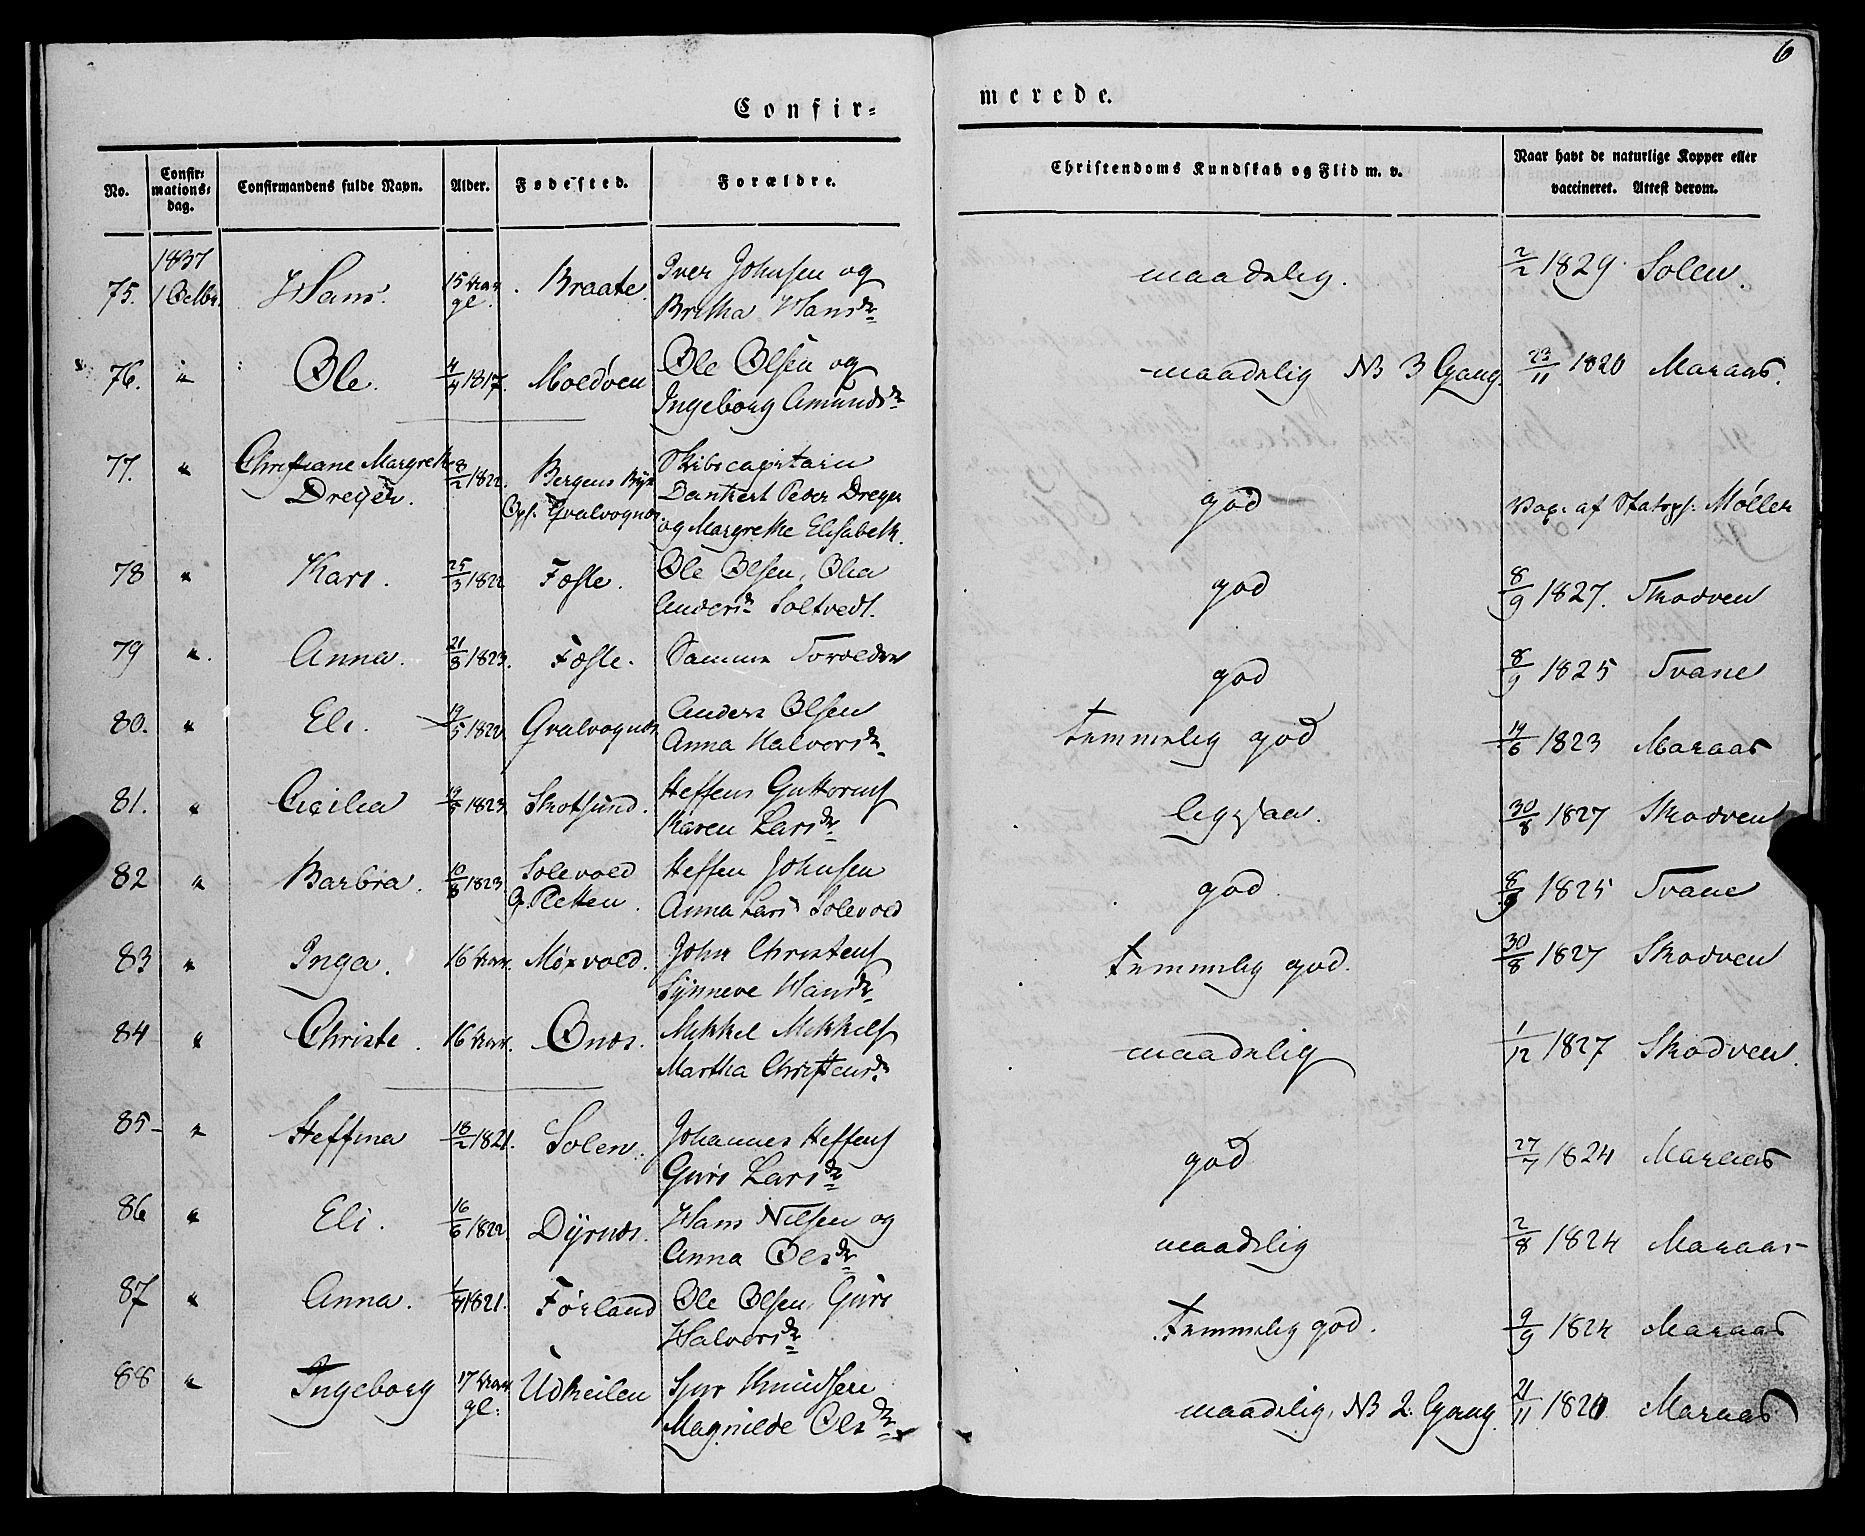 6
Confir-
merede.
No.
Confir-
mations-
dag.
Confirmandens fulde Navn.
Alder.
Fødested.
Forældre.
Christendoms Kundskab og Flid m. v.
Naar havt de naturlige Kopper eller
vaccineret. Attest derom.
1837
75. 1 Octbr. Hans. 15 Aar gl. Braate. Iver Johnsen og
Britha Hansdr maadelig. 2/2 1829. Solen.
76. " Ole. 4/4 1817. Moldøen Ole Olsen og
Ingeborg Amundsdr maadelig NB 3 Gang. 23/11 1820 Maraas.
77. " Christiane Margrethe
Dreyer. 8/2 1822. Bergens Bye
Ops. Hvalvognæs Skibscapitain
Dankert Peter Dreyer
og Margrethe Elisabeth. god Vax. af Møller
78 " Kari. 25/3 1822 Fosse. Ole Olsen, Olia
Andersdr Soltvedt. god 8/9 1827. Skodven
79 " Anna. 21/8 1823. Fosse. god 8/9 1825 Tvane
80. " Eli. 19/5 1820 Hvalvognæs Anders Olsen
Anna Halvorsdr temmelig god 14/6 1823 Maraas
81. " Cicilia 19/8 1823 Skotsund. Steffens Guttorms
Karen Larsdr ligesaa. 30/8 1827 Skodven
82 " Barbra. 10/8 1823. Solevold
O. Pletten. Steffen Johnsen
Anna Lars Solevold god. 8/9 1825 Tvane
83 " Inga. 16 Aar. Moxvold. John Christens
Synneve Hansdr temmelig god. 30/8 1827 Skodven
84 " Christe. 16 Aar. Onæs. Mikkel Mikkels
Martha Christensdr. maadelig 1/12 1827 Skodven.
85 " Steffina 18/2 1821. Solen. Johannes Steffens
Guri Larsdr god 27/7 1824 Maraas
86 " Eli. 16/6 1822 Dyrnæs. Hans Nilsen og
Anna Olsdr maadelig 2/8 1824 Maraas
87 " Anna. 1/4 1821. Førland Ole Olsen, Guri
Halvorsdr temmelig god. 9/9 1824 Maraas
88 " Ingeborg 17 Aar gl. Udkeilen Sjur Knudsen
Magnilde Olsdr maadelig. NB 2. Gang. 21/11 1820 Maraas